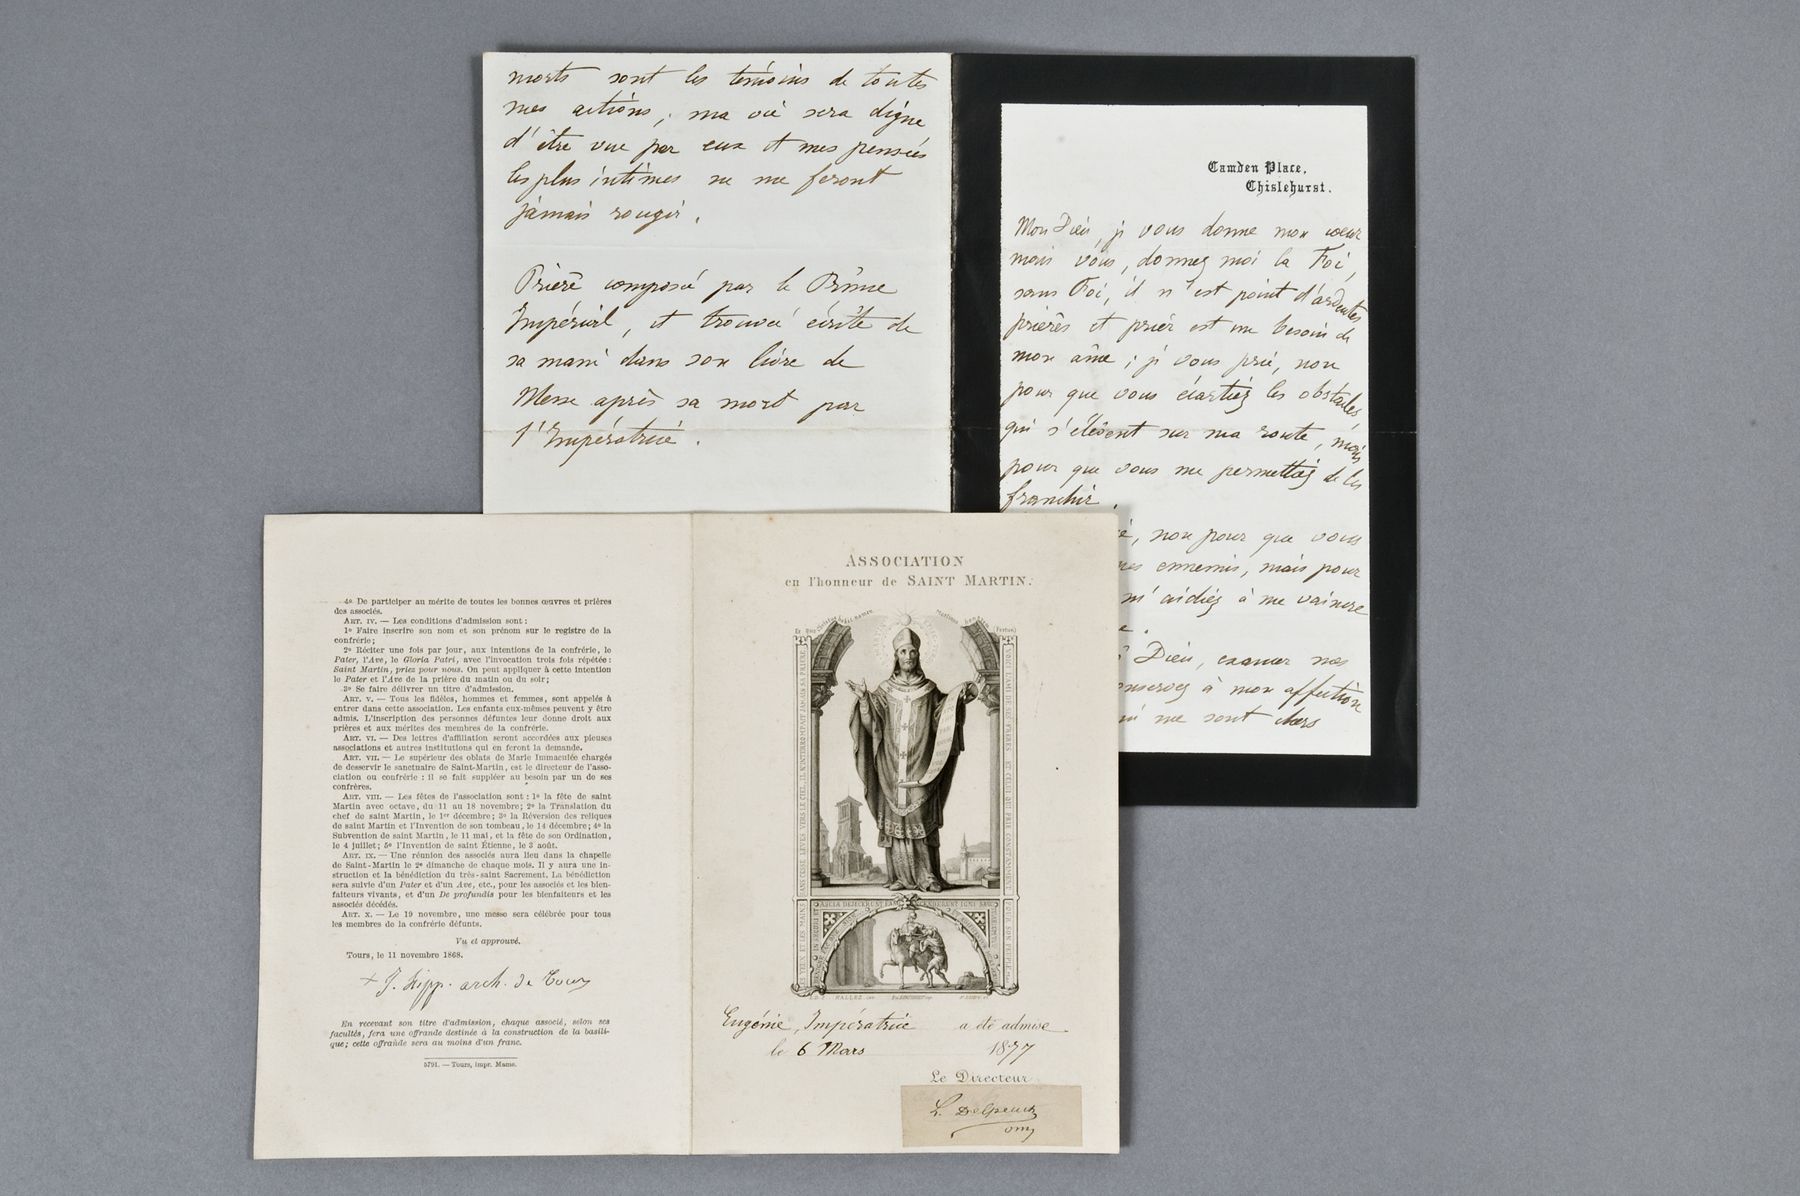 morts sont les témoins de toutes
mes actions, ma vie sera digne
d'être vue par eux et mes pensées
les plus intimes ne me feront
jamais rougir.
Prière composée par le Prince
Impérial, et trouvée écrite de
sa main dans son livre de
Messe après sa mort par
l'Impératrice.
Camden Place,
Chislehurst.
Mon Dieu, je vous donne mon cœur
mais vous, donnez moi la Foi,
sans Foi, il n'est point d'ardentes
prières et prier est un besoin de
mon âme; je vous prie, non
pour que vous écartiez les obstacles
qui s'élèvent sur ma route, mais
pour que vous me permettiez de les
franchir.
, non pour que vous
mes ennemis, mais pour
m'aidiez à me vaincre
Dieu, exaucer mes
conservez à mon affection
qui me sont chers
4º De participer au mérite de toutes les bonnes œuvres et prières
des associés.
ART. IV. — Les conditions d'admission sont :
1º Faire inscrire son nom et son prénom sur le registre de la
confrérie;
2º Réciter une fois par jour, aux intentions de la confrérie, le
Pater, l'Ave, le Gloria Patri, avec l'invocation trois fois répétée :
Saint Martin, priez pour nous. On peut appliquer à cette intention
le Pater et l'Ave de la prière du matin ou du soir;
3º Se faire délivrer un titre d'admission.
ART. V. — Tous les fidèles, hommes et femmes, sont appelés à
entrer dans cette association. Les enfants eux-mêmes peuvent y être
admis. L'inscription des personnes défuntes leur donne droit aux
prières et aux mérites des membres de la confrérie.
ART. VI. — Des lettres d'affiliation seront accordées aux pieuses
associations et autres institutions qui en feront la demande.
ART. VII. — Le supérieur des oblats de Marie Immaculée chargés
de desservir le sanctuaire de Saint-Martin, est le directeur de l'asso-
ciation ou confrérie : il se fait suppléer au besoin par un de ses
confrères.
ART. VIII. — Les fêtes de l'association sont : 1º la fête de saint
Martin avec octave, du 11 au 18 novembre; 2º la Translation du
chef de saint Martin, le 1er décembre; 3º la Réversion des reliques
de saint Martin et l'Invention de son tombeau, le 14 décembre; 4º la
Subvention de saint Martin, le 11 mai, et la fête de son Ordination,
le 4 juillet; 5º l'Invention de saint Étienne, le 3 août.
ART. IX. — Une réunion des associés aura lieu dans la chapelle
de Saint-Martin le 2e dimanche de chaque mois. Il y aura une in-
struction et la bénédiction du très-saint Sacrement. La bénédiction
sera suivie d'un Pater et d'un Ave, etc., pour les associés et les bien-
faiteurs vivants, et d'un De profundis pour les bienfaiteurs et les
associés décédés.
ART. X. — Le 19 novembre, une messe sera célébrée pour tous
les membres de la confrérie défunts.
Vu et approuvé.
Tours, le 11 novembre 1868.
+ J. Hipp. arch. de Tours
En recevant son titre d'admission, chaque associé, selon ses
facultés, fera une offrande destinée à la construction de la basili-
que; cette offrande sera au moins d'un franc.
5791. — Tours, impr. Mame.
ASSOCIATION
en l'honneur de SAINT MARTIN.
SANS CESSE LEVÉS VERS LE CIEL, IL N'INTERROMPAIT JAMAIS SA PRIÈRE
VOICI L'AMI DE SES FRÈRES ET CELUI QUI PRIE CONSTAMMENT
LES YEUX ET LES MAINS
POUR SON PEUPLE
HALLEZ
Eugénie, Impératrice a été admise
le 6 Mars 1877
Le Directeur
L. Delpeuch
omi